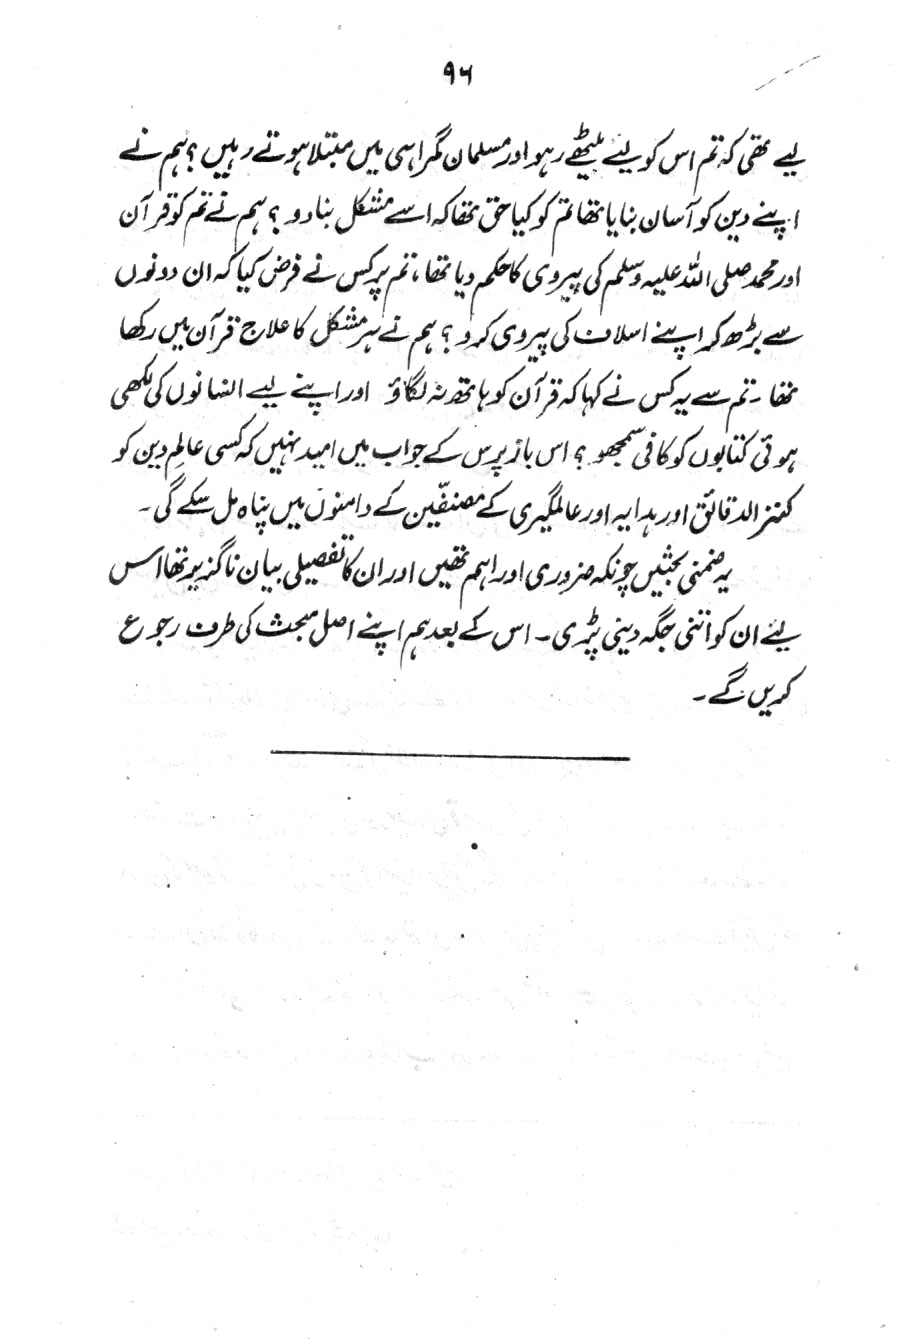 ۹۶
لیے تھی کہ تم اس کو لیئے بیٹھے رہو اور مسلمان گمراہی میں مبتلا ہوتے رہیں ؟ ہم نے
اپنے دین کو آسان بنایا تھا تم کو کیا حق تھا کہ اسے مشکل بنا دو ؟ ہم نے تم کو قرآن
اور محمد صلی اللہ علیہ وسلم کی پیروی کا حکم دیا تھا، تم پر کس نے فرض کیا کہ ان دونوں
سے بڑھ کر اپنے اسلاف کی پیروی کرو ؟ ہم نے ہر مشکل کا علاج قرآن میں رکھا
تھا ۔ تم سے یہ کس نے کہا کہ قرآن کو ہاتھ نہ لگاؤ اور اپنے لیے انسانوں کی لکھی
ہوئی کتابوں کو کافی سمجھو ؟ اس باز پرس کے جواب میں امید نہیں کہ کسی عالمِ دین کو
کنز الدقائق اور ہدایہ اور عالمگیری کے مصنفین کے دامنوں میں پناہ مل سکے گی ۔
یہ ضمنی بحثیں چونکہ ضروری اور اہم تھیں اور ان کا تفصیلی بیان ناگزیر تھا اس
لیئے ان کو اتنی جگہ دینی پڑی ۔ اس کے بعد ہم اپنے اصل مبحث کی طرف رجوع
کریں گے ۔